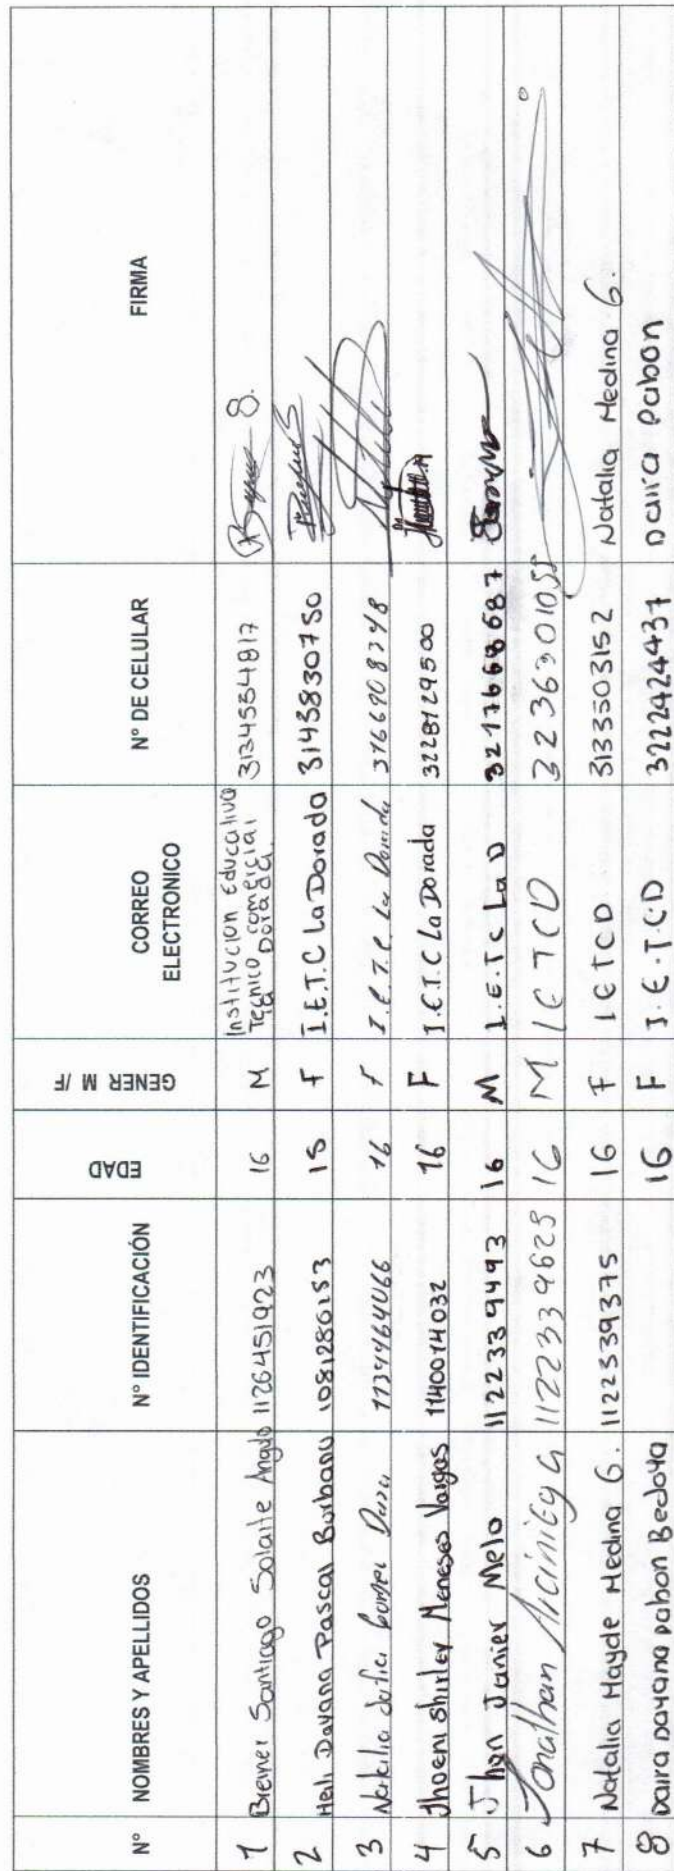 N° NOMBRES Y APELLIDOS N° IDENTIFICACIÓN EDAD GENER M /F CORREO ELECTRONICO N° DE CELULAR FIRMA
1 Brener Santiago Solarte Angulo 1126451923 16 M Institucion Educativa Tecnico comercial la Dorada 3124554817
2 Heli Dayana Pascal Burbano 1081286253 15 F I.E.T.C La Dorada 3145830750
3 Natalia 16 F I.E.T.C. La Dorada 3166908348
4 Jhoeni Shirley Meneses Vargas 1140014032 16 F I.E.T.C La Dorada 3228129500
5 Jhon Janier Melo 1122339493 16 M I.E.TC La D 3217668687
6 Jonathan 1122339625 16 M IETCD 3236301055
7 Natalia Hayde Medina G. 1122339375 16 F IETCD 3133503152 Natalia Medina G.
8 Daira Dayana Pabon Bedoya 16 F I.E.T.C.D 3222424437 Daira Pabon